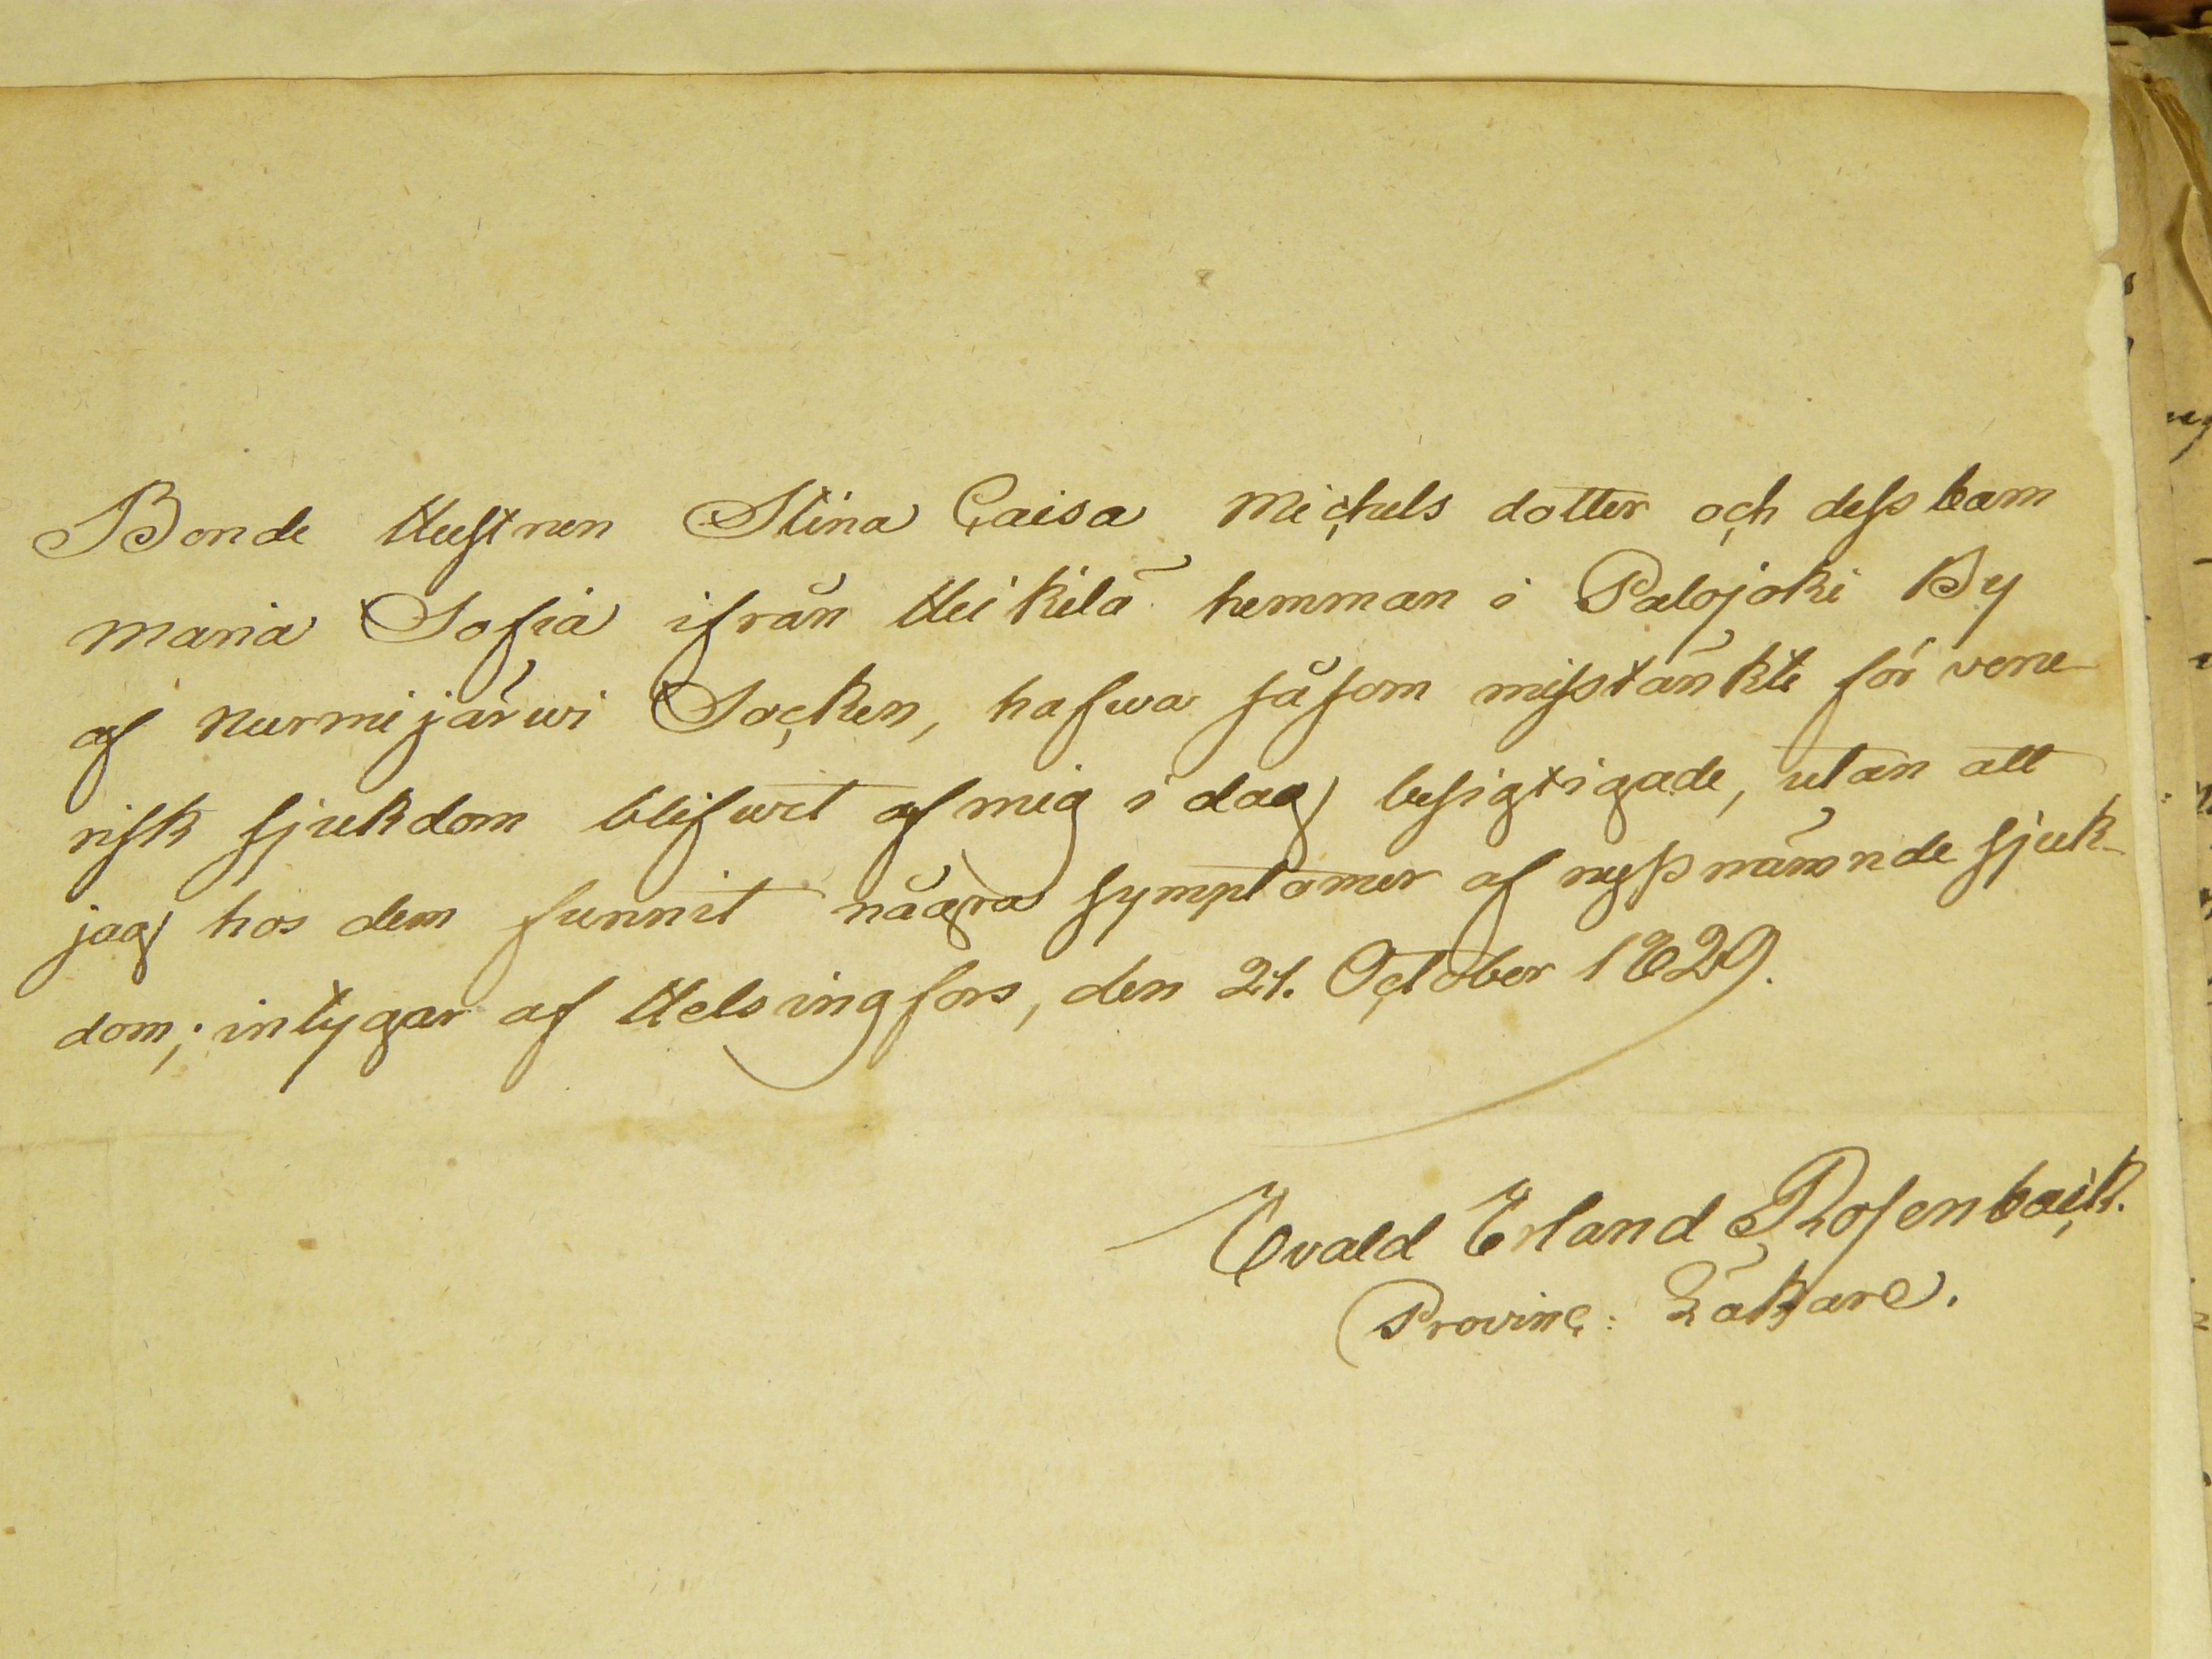 Bonde Hustruen Stina Caisa Michels dotter och dess barn
Maria Sofia ifrån Heikilä hemman i Palojoki By
af Nurmijärwi Socken, hafwa såsom misstänkte för vene-
risk sjukdom blifwit af mig i dag besigtigade, utan att
jag hos dem funnit några symptomer af nyssnämnde sjuk-
dom; intygar af Helsingfors, den 21. October 1829.
Evald Erland Rosenback.
Provinc: Läkare.